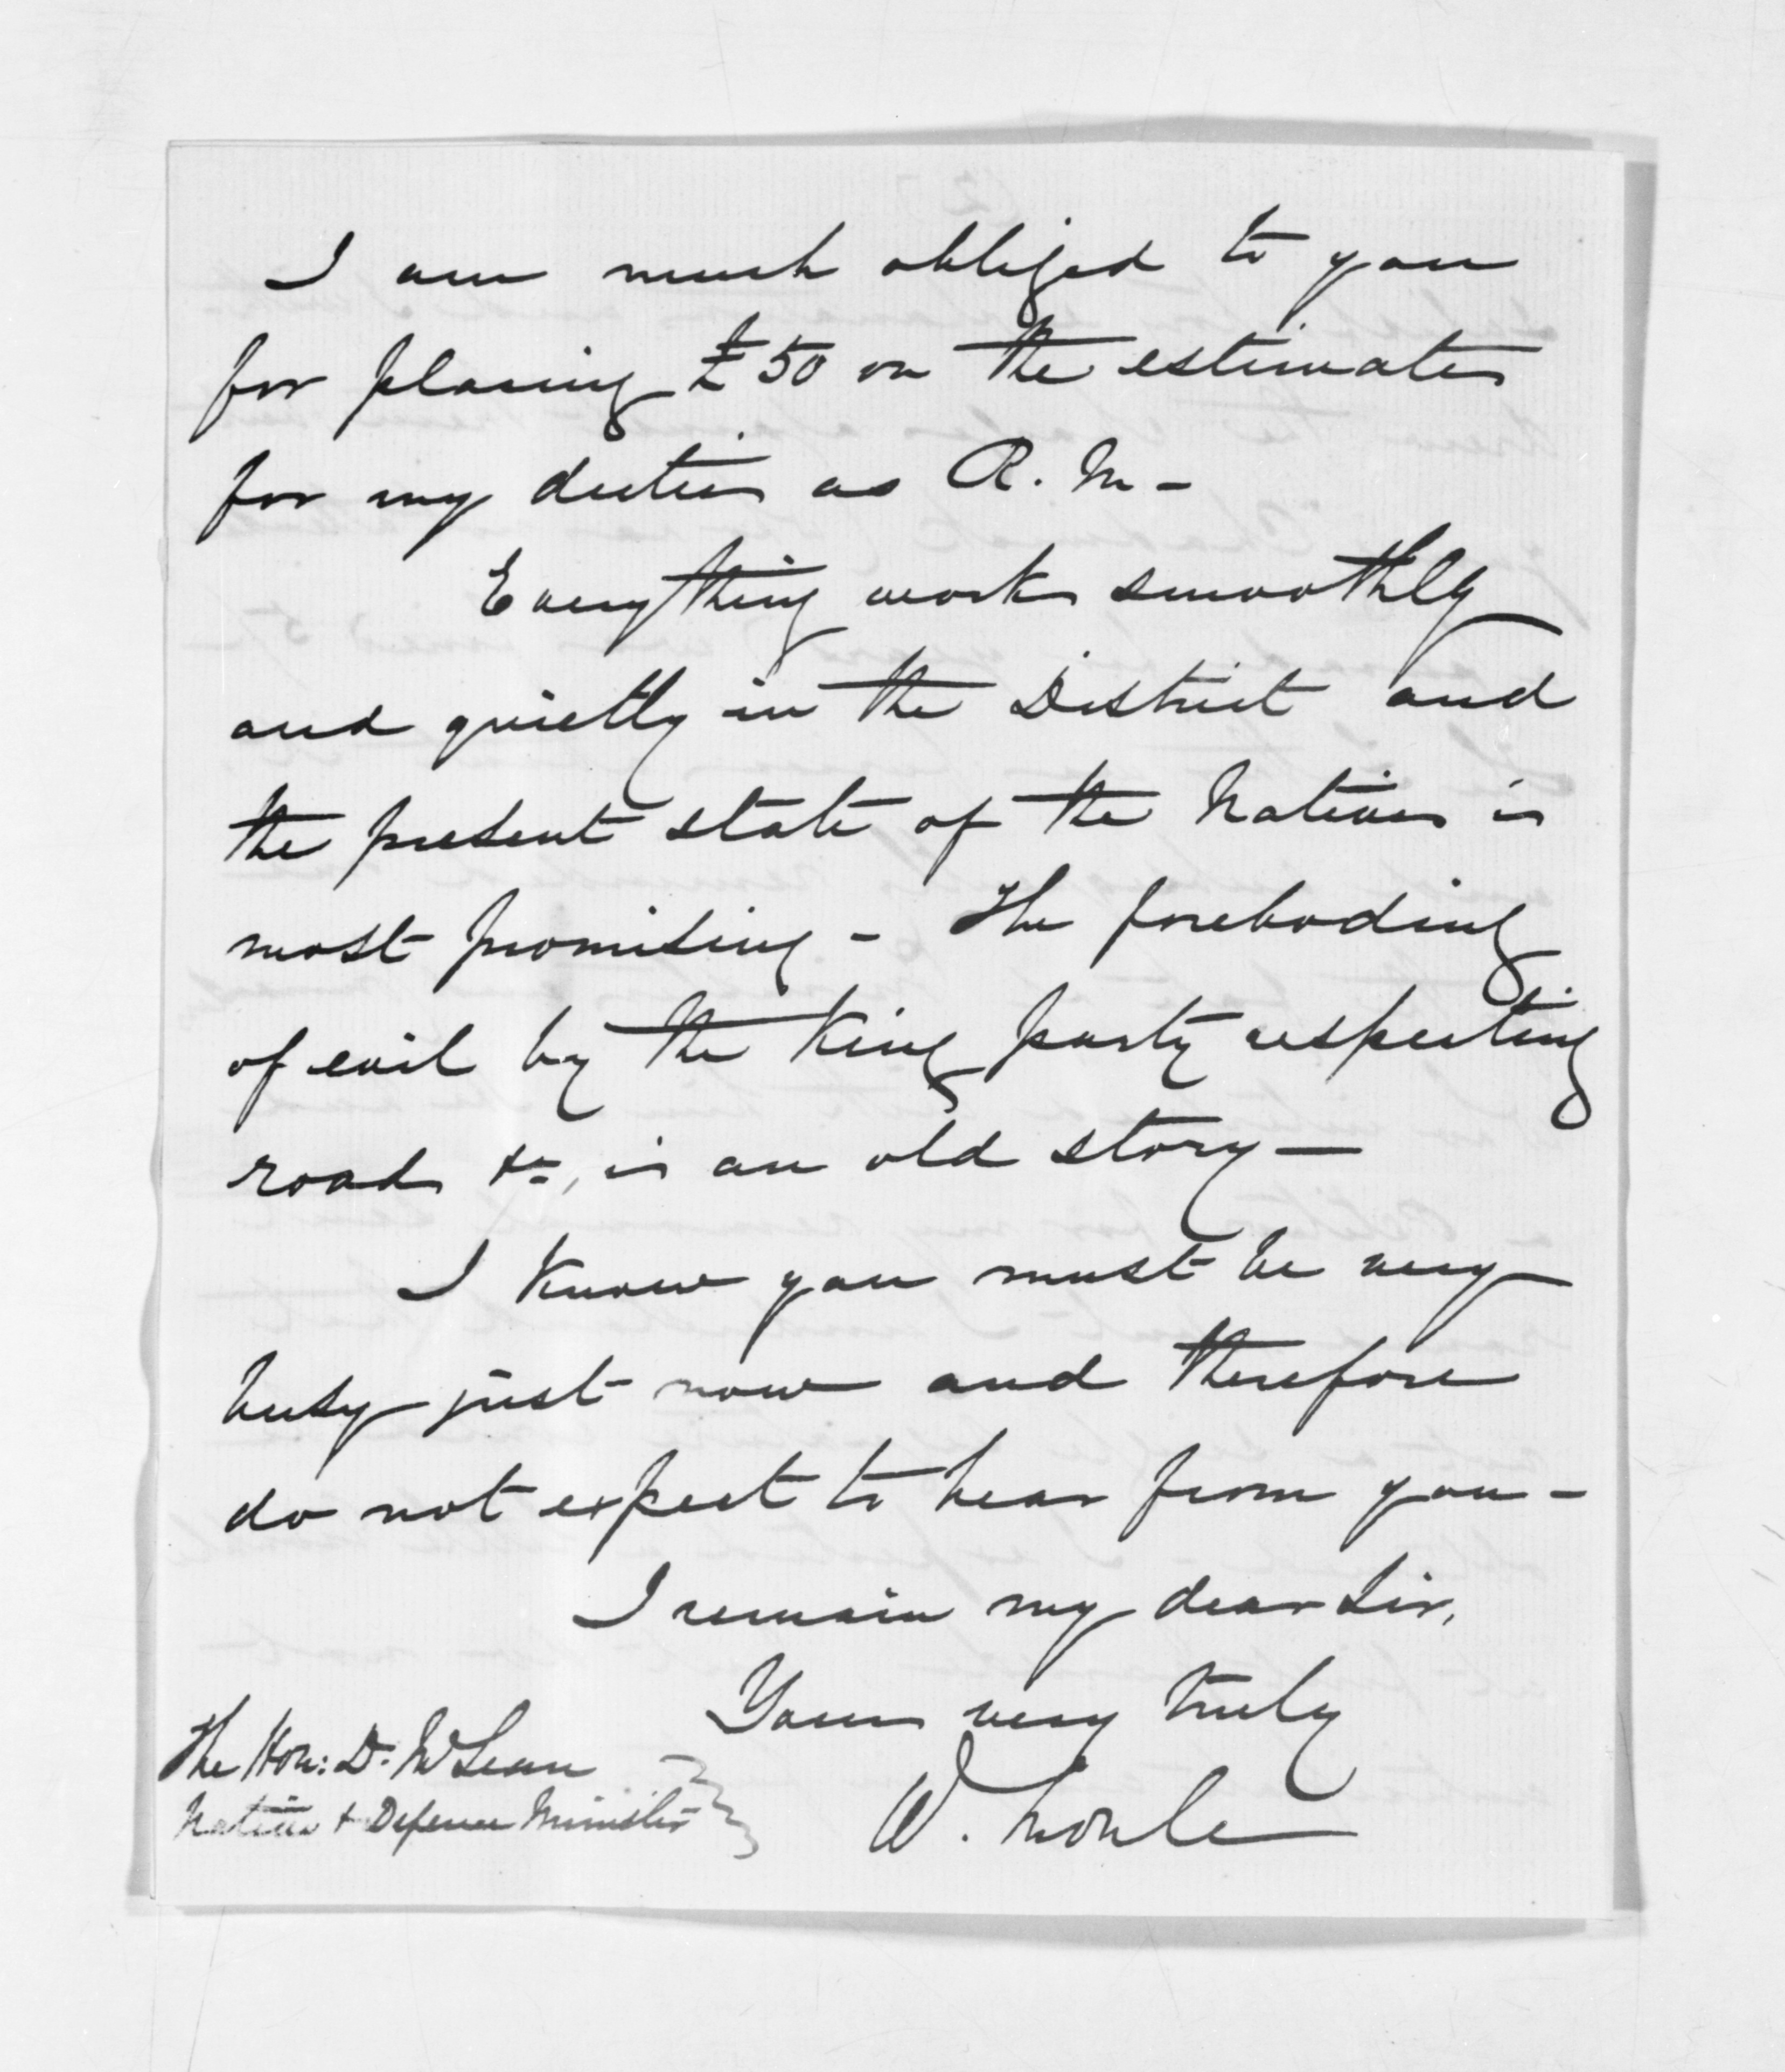 I am much obliged to you
for placing £50 on the estimates
for my duties as R. M -
Everything works smoothly
and quietly in the District and
the present state of the Natives is
most promising - The foreboding
of evil by the King party respecting
roads &c, is an old story -
I know you must be very
busy just now and therefore
do not expect to hear from you -
I remain my dear Sir,
Yours very truly
W.
The Hon: D. McLean
Native & Defence Minister